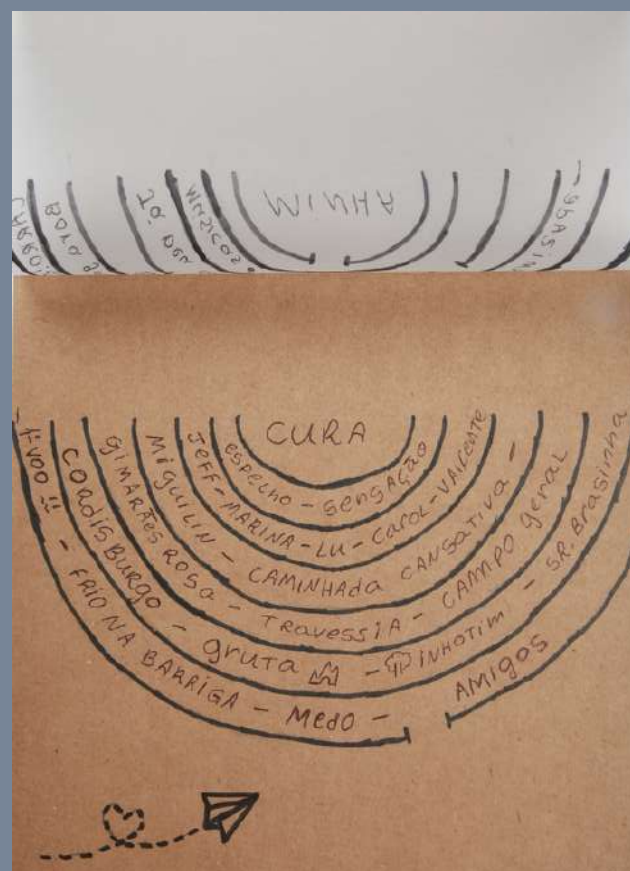 MINHA
CURA
espelho - sensação
Jeff - MARINA - LU - Carol - VALENTE
MIGUILIN - CAMINHADA CANSATIVA -
GIMARÃES ROSA - TRAVESSIA - CAMPO geral
CORDISBURGO - gruta - INHOTIM - SR. Brasinha
VOO - FRIO NA BARRIGA - MEDO - AMIGOS